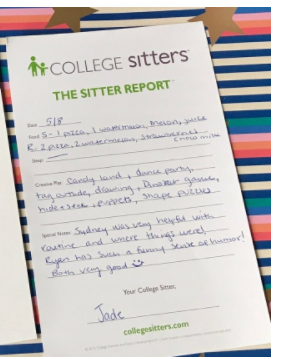 COLLEGE sitters
THE SITTER REPORT
Date 5/8
Food S - 1 pizza, 1 watermelon, melon, juice
R. 2 pizza, 2 watermelon, strawberries
Sleep —
Creative Play Candy land, dance party,
tag outside, drawing, games,
hide + seek, puppets, shape puzzles
Special Notes Sydney was very helpful with
routine and where things were!
Ryan has such a funny sense of humor!
Both very good
Your College Sitter,
Jade
collegesitters.com